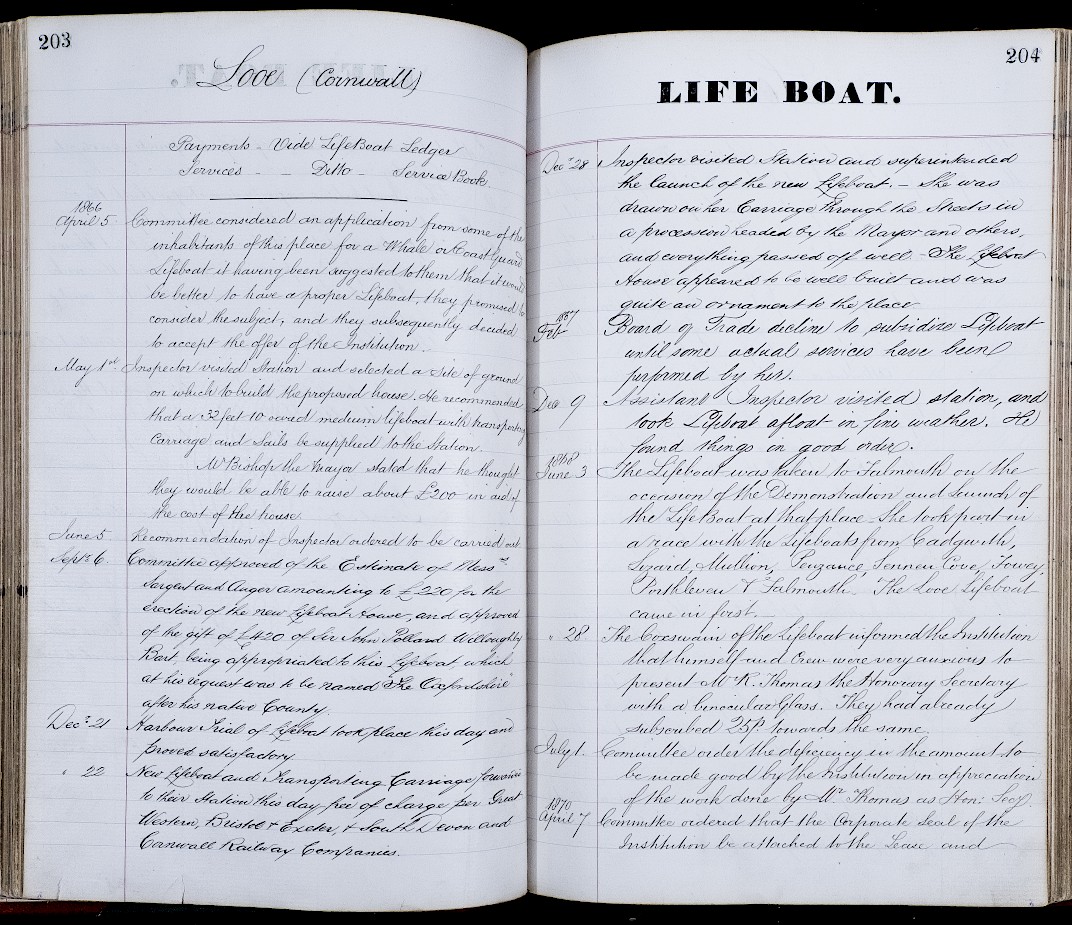 203
Looe (Cornwall)
Payments - Vide LifeBoat Ledger
Services - - Ditto - Service Book.
1866
April 5 Committee considered an application from some of the
inhabitants of this place for a Whale or Coast Guard
Lifeboat it having been suggested to them that it would
be better to have a proper Lifeboat, they promised to
consider the subject, and they subsequently decided
to accept the offer of the Institution.
May 1st Inspector visited Station and selected a Site of ground
on which to build the proposed house. He recommended
that a 32 feet 10 oared medium lifeboat with transporting
Carriage and Sails be supplied to the Station.
Mr Bishop the Mayor stated that he thought
they would be able to raise about £200 in aid of
the cost of the house.
June 5 Recommendation of Inspector ordered to be carried out
Septr 6. Committee approved of the Estimate of Messrs
Sargent and Anger amounting to £220 for the
erection of the new Lifeboat House, and approved
of the gift of £420 of Sir John Pollard Willoughby
Bart, being appropriated to this Lifeboat, which
at his request was to be named "The Oxfordshire"
after his native County.
Decr 21 Harbour Trial of Lifeboat took place this day and
proved satisfactory.
" 22 New Lifeboat and Transporting Carriage forwarded
to their Station this day free of charge per Great
Western, Bristol & Exeter, & South Devon and
Cornwall Railway Companies.
204
LIFE BOAT.
Decr 28 Inspector visited Station and superintended
the launch of the new Lifeboat. - She was
drawn on her Carriage through the Streets in
a procession headed by the Mayor and others,
and everything passed off well - The Lifeboat
House appeared to be well built and was
quite an ornament to the place.
1867
Feb Board of Trade decline to subsidize Lifeboat
until some actual services have been
performed by her.
Dec 9 Assistant Inspector visited station, and
took Lifeboat afloat in fine weather. He
found things in good order.
1868
June 3 The Lifeboat was taken to Falmouth on the
occasion of the Demonstration and launch of
the LifeBoat at that place. She took part in
a race with the Lifeboats from Cadgwith,
Lizard, Mullion, Penzance, Sennen Cove, Fowey,
Porthleven & Falmouth. The Looe Lifeboat
came in first.
" 28 The Coxswain of the Lifeboat informed the Institution
that himself and Crew were very anxious to
present Mr R. Thomas the Honorary Secretary
with a binocular Glass. They had already
subscribed 25/- towards the same.
July 1. Committee order the deficiency in the amount to
be made good by the Institution in appreciation
of the work done by Mr Thomas as Hon: Secy.
1870
April 7 Committee ordered that the Corporate Seal of the
Institution be attached to the Lease and